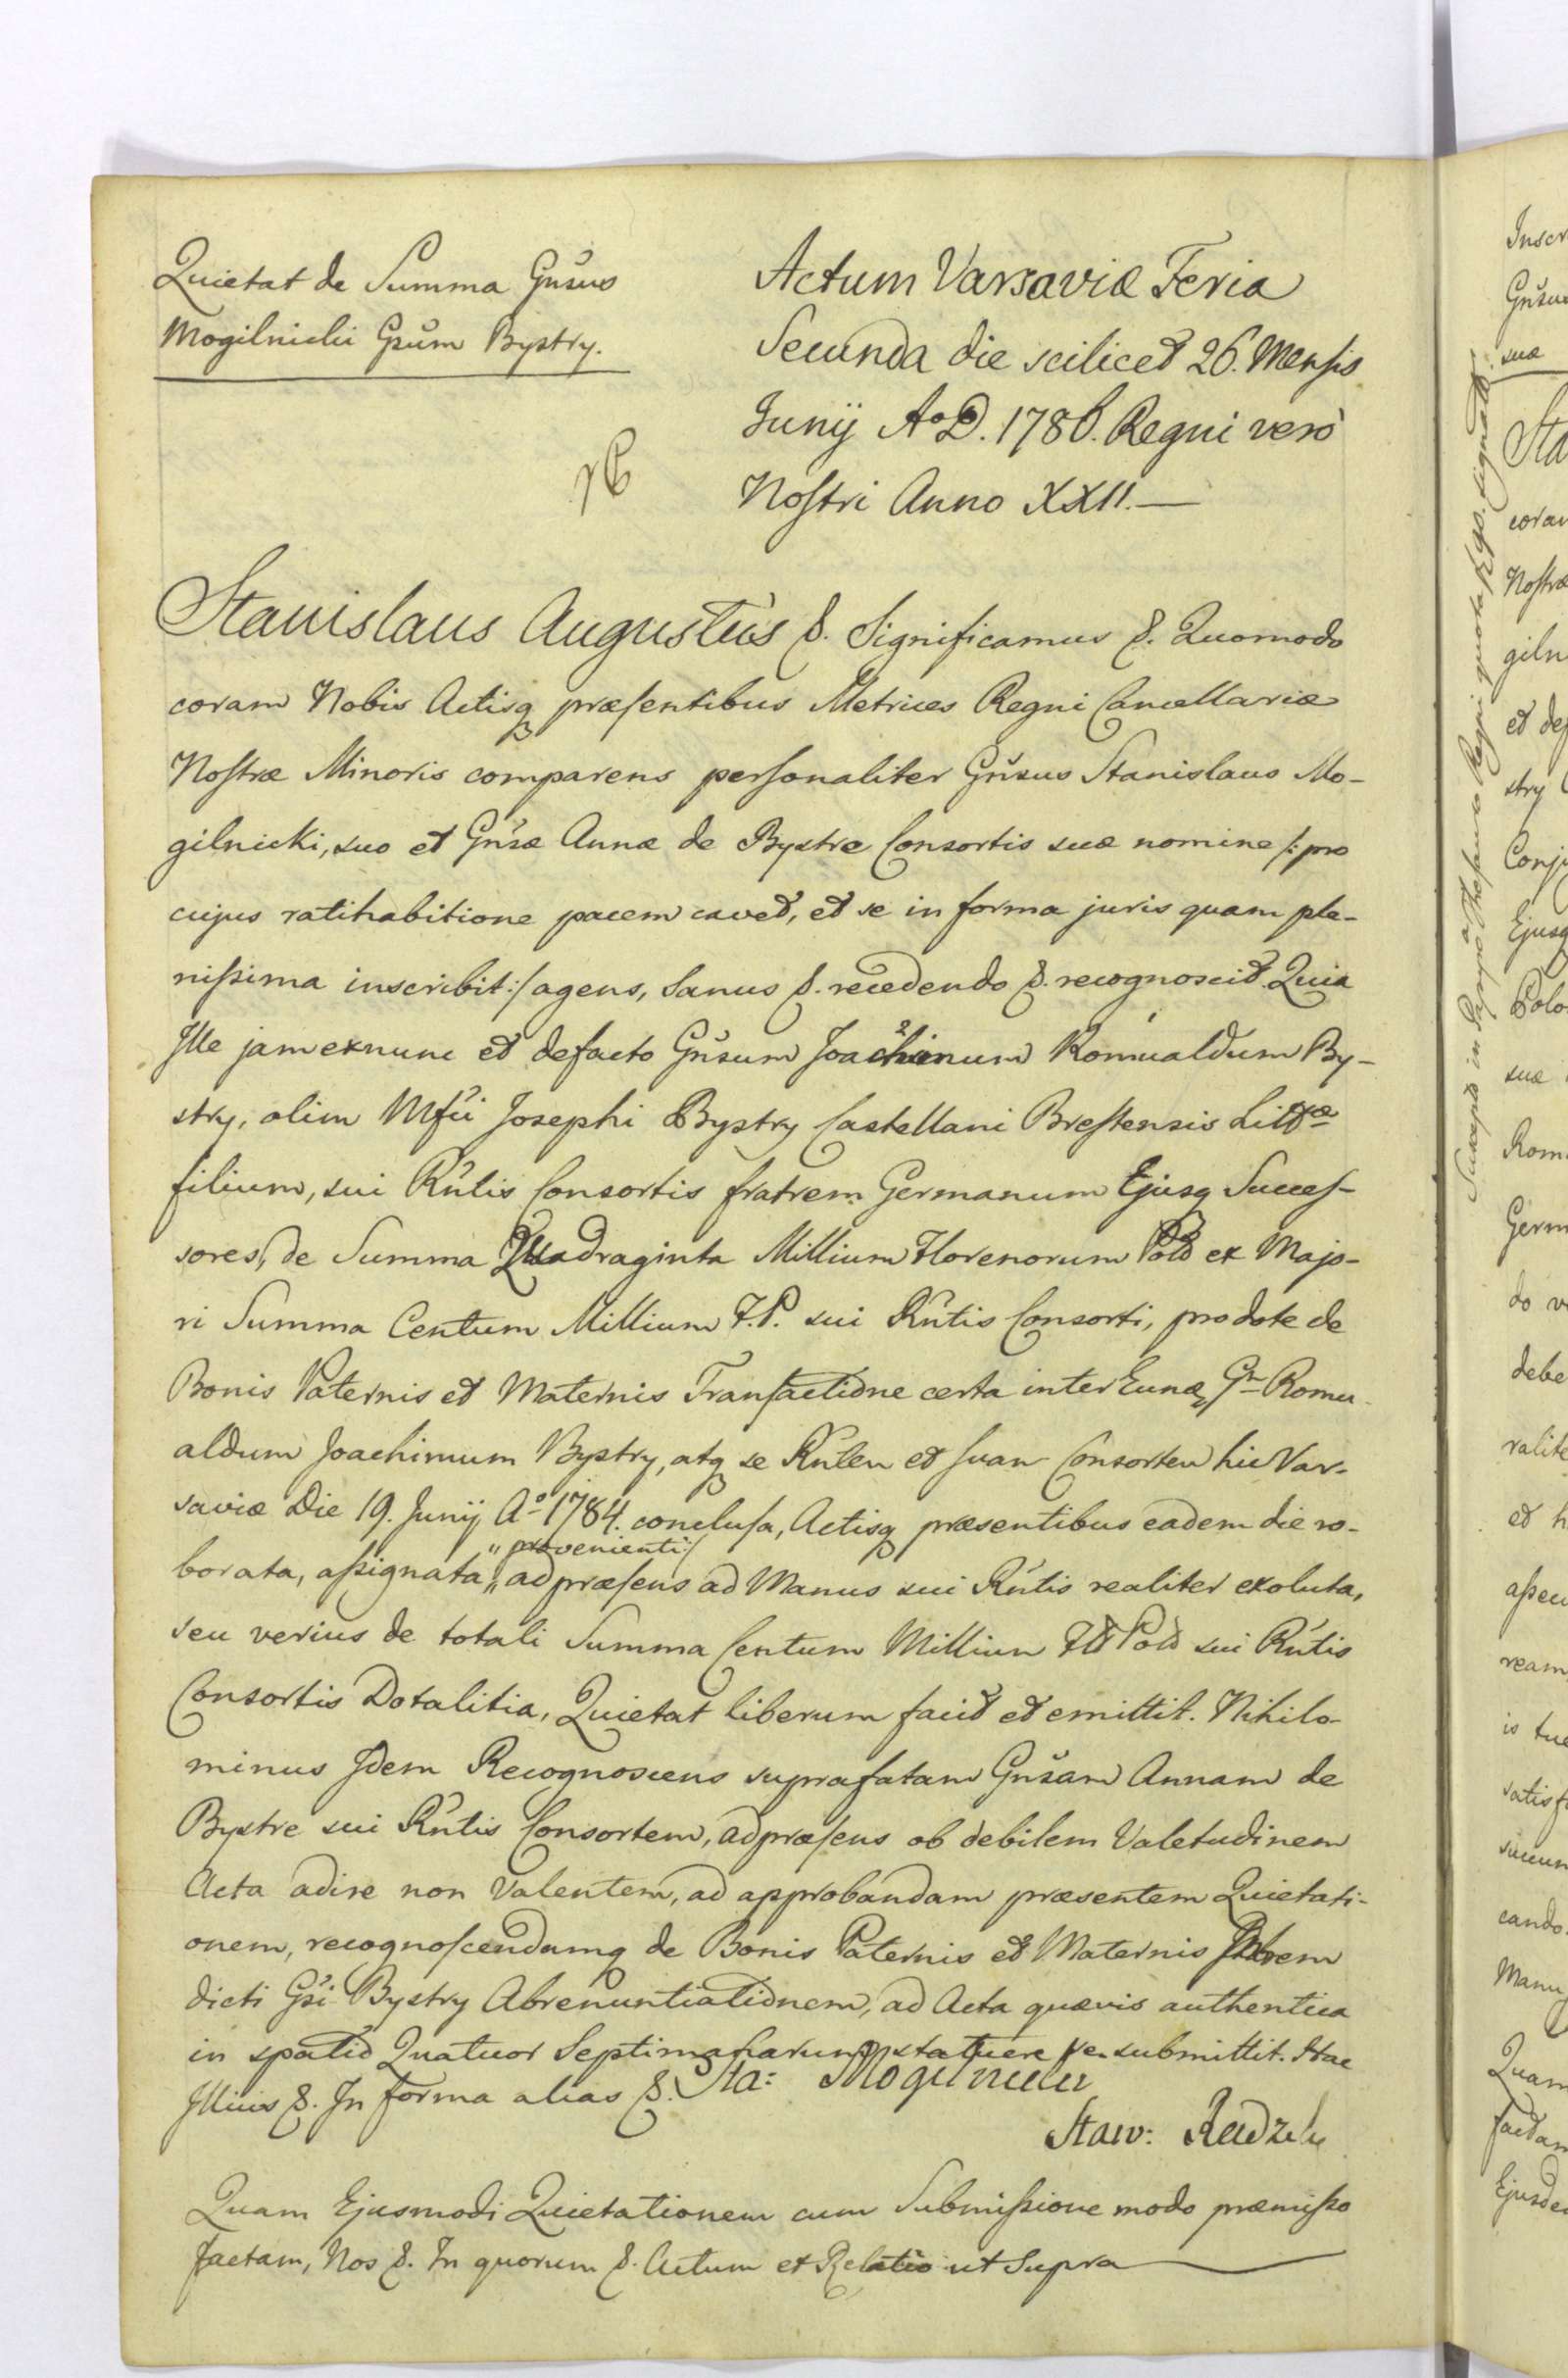 Quietat de Summa Gnsus
Mogilnicki Gsum Bystry.
Actum Varsaviæ Feria
Secunda die scilicet 26. Mensis
Junij A° D. 1786. Regni verò
Nostri Anno XXII.—
Stanislaus Augustus &. Significamus &. Quomodo
coram Nobis Actisq præsentibus Metrices Regni Cancellariæ
Nostræ Minoris comparens personaliter Gnsus Stanislaus Mo-
gilnicki, suo et Gnsæ Annæ de Bystre Consortis suæ nomine /: pro
cujus ratihabitione pacem cavet, et se in forma juris quam ple-
nissima inscribit :/ agens, Sanus &. recedendo &. recognoscit. Quia
Ille jam exnunc et defacto Gnsum Joachimum Romualdum By-
stry, olim Mfci Josephi Bystry Castellani Brestensis Littæ
filium, sui Rntis Consortis fratrem Germanum Ejusq Succes-
sores, de Summa Quadraginta Millium Florenorum Pold ex Majo-
ri Summa Centum Millium F. P. sui Rntis Consorti, pro dote de
Bonis Paternis et Maternis Transactione certa inter Eunq Gn Romu
aldum Joachimum Bystry, atq se Rnten et suan Consorten hic Var-
saviæ Die 19. Junij A° 1784. conclusa, Actisq præsentibus eadem die ro-
" provenienti :/
borata, assignata, " ad præsens ad Manus sui Rntis realiter exoluta,
seu verius de totali Summa Centum Millium Fl Pold sui Rntis
Consortis Dotalitia, Quietat liberum facit et emittit. Nihilo-
minus Idem Recognoscens suprafatam Gnsam Annam de
Bystre sui Rntis Consortem, ad præsens ob debilem Valetudinem
Acta adire non Valentem, ad approbandam præsentem Quietati-
onem, recognoscendamq de Bonis Paternis et Maternis
dicti Gsi Bystry Abrenuntiationem, ad Acta quævis authentica
in spatio Quatuor Septimanarum statuere se submittit. Hac
Illius &. In forma alias &. Sta: Mogilnicki
Staw:
Quam Ejusmodi Quietationem cum Submissione modo præmisso
factam, Nos &. In quorum &. Actum et Relatio ut Supra